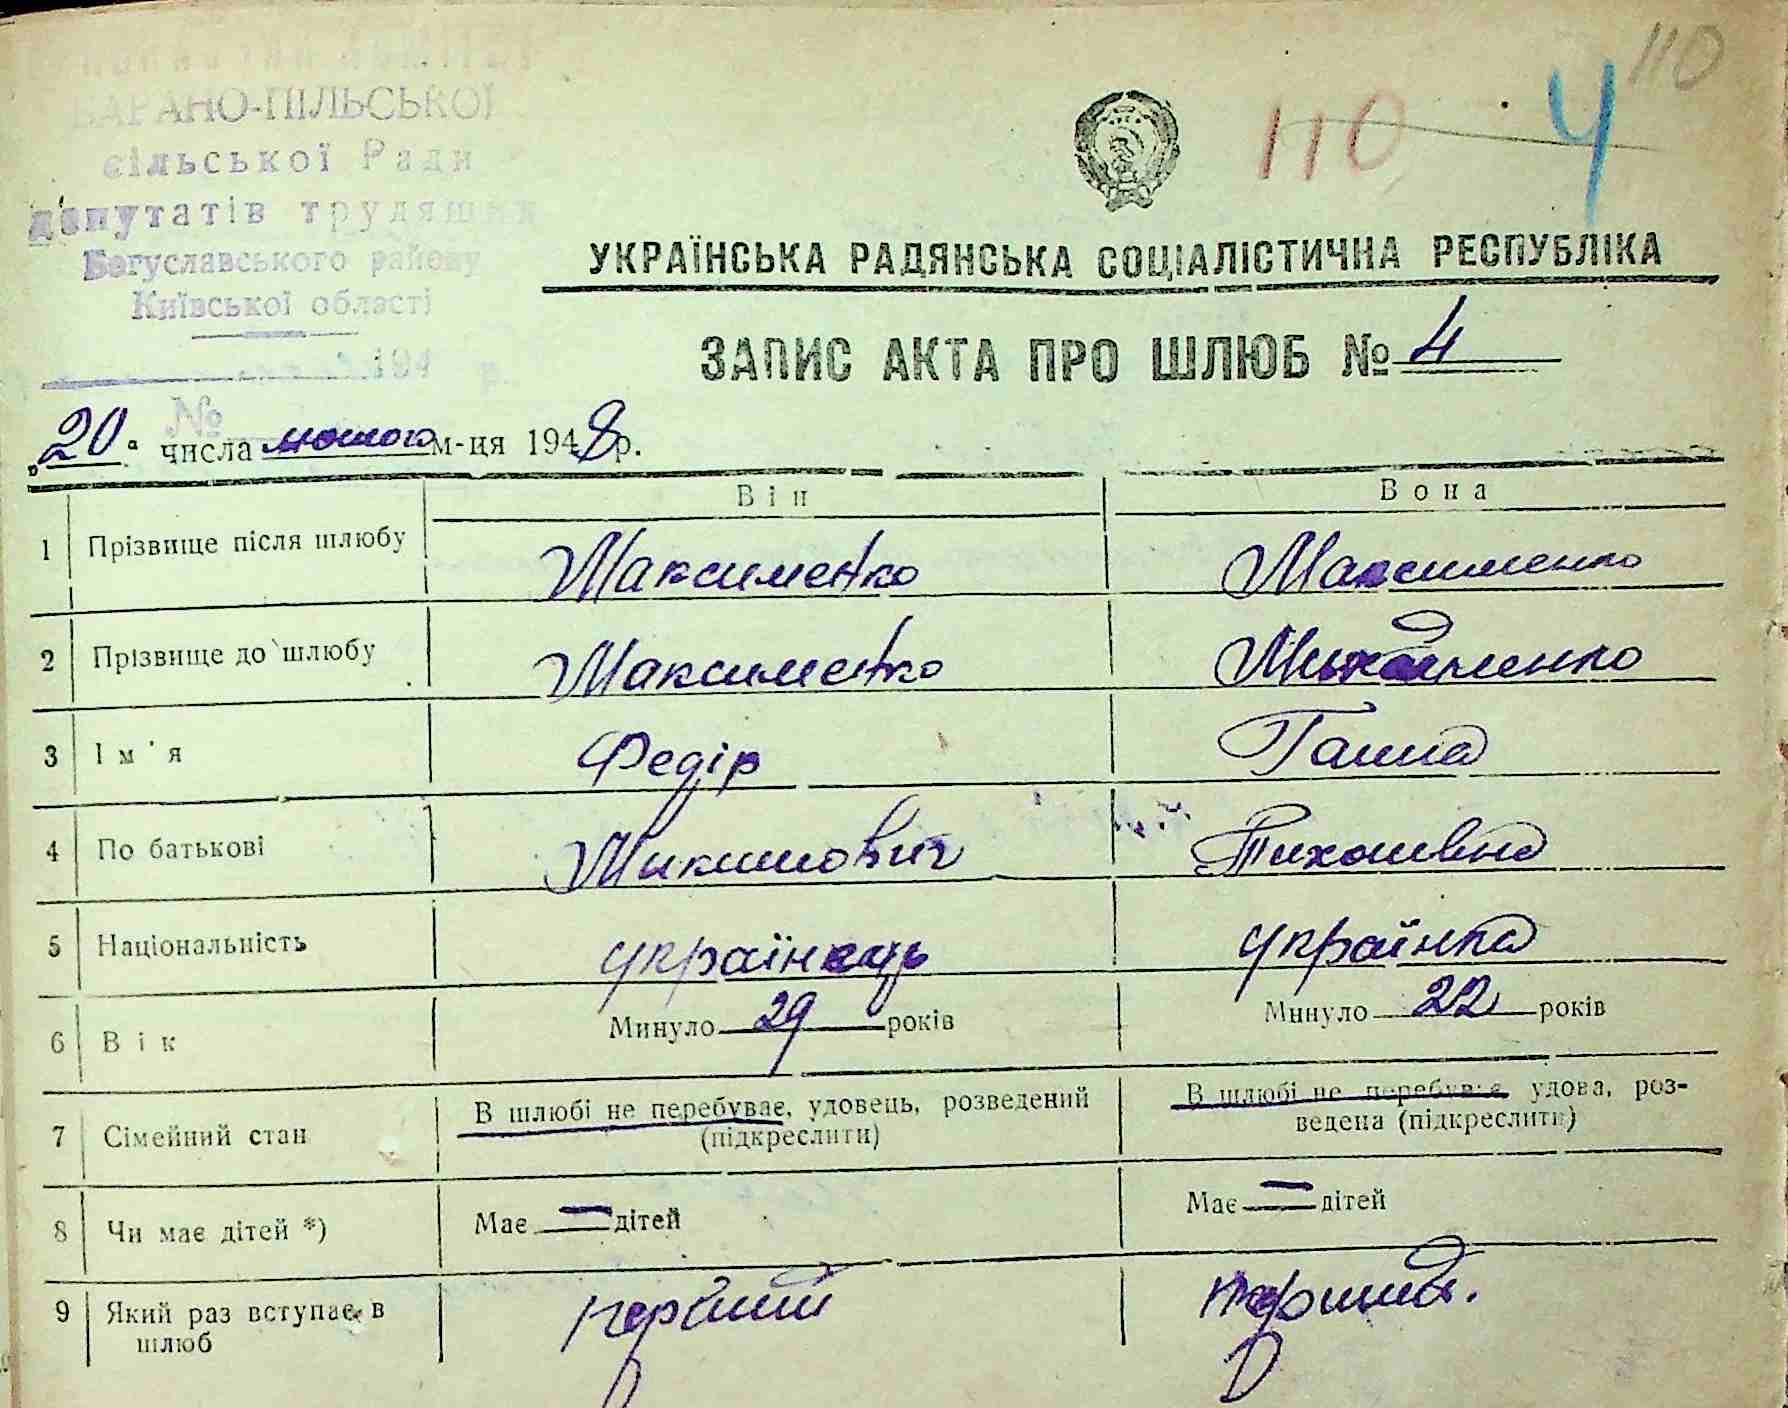 110
110
4
БАРАНО-ПІЛЬСЬКОЇ
сільської Ради
депутатів трудящих
Богуславського району
Київської області
194 р.
№
УКРАЇНСЬКА РАДЯНСЬКА СОЦІАЛІСТИЧНА РЕСПУБЛІКА
ЗАПИС АКТА ПРО ШЛЮБ № 4
„20“ числа лютого м-ця 1948 р.
Він Вона
1 Прізвище після шлюбу Максименко Максименко
2 Прізвище до шлюбу Максименко
3 Ім'я Федір Ганна
4 По батькові Микитович Тихонівна
5 Національність українець українка
6 Вік Минуло 29 років Минуло 22 років
7 Сімейний стан В шлюбі не перебуває, удовець, розведений (підкреслити) В шлюбі не перебуває удова, роз-
ведена (підкреслити)
8 Чи має дітей *) Має — дітей Має — дітей
9 Який раз вступає в перший перший.
шлюб